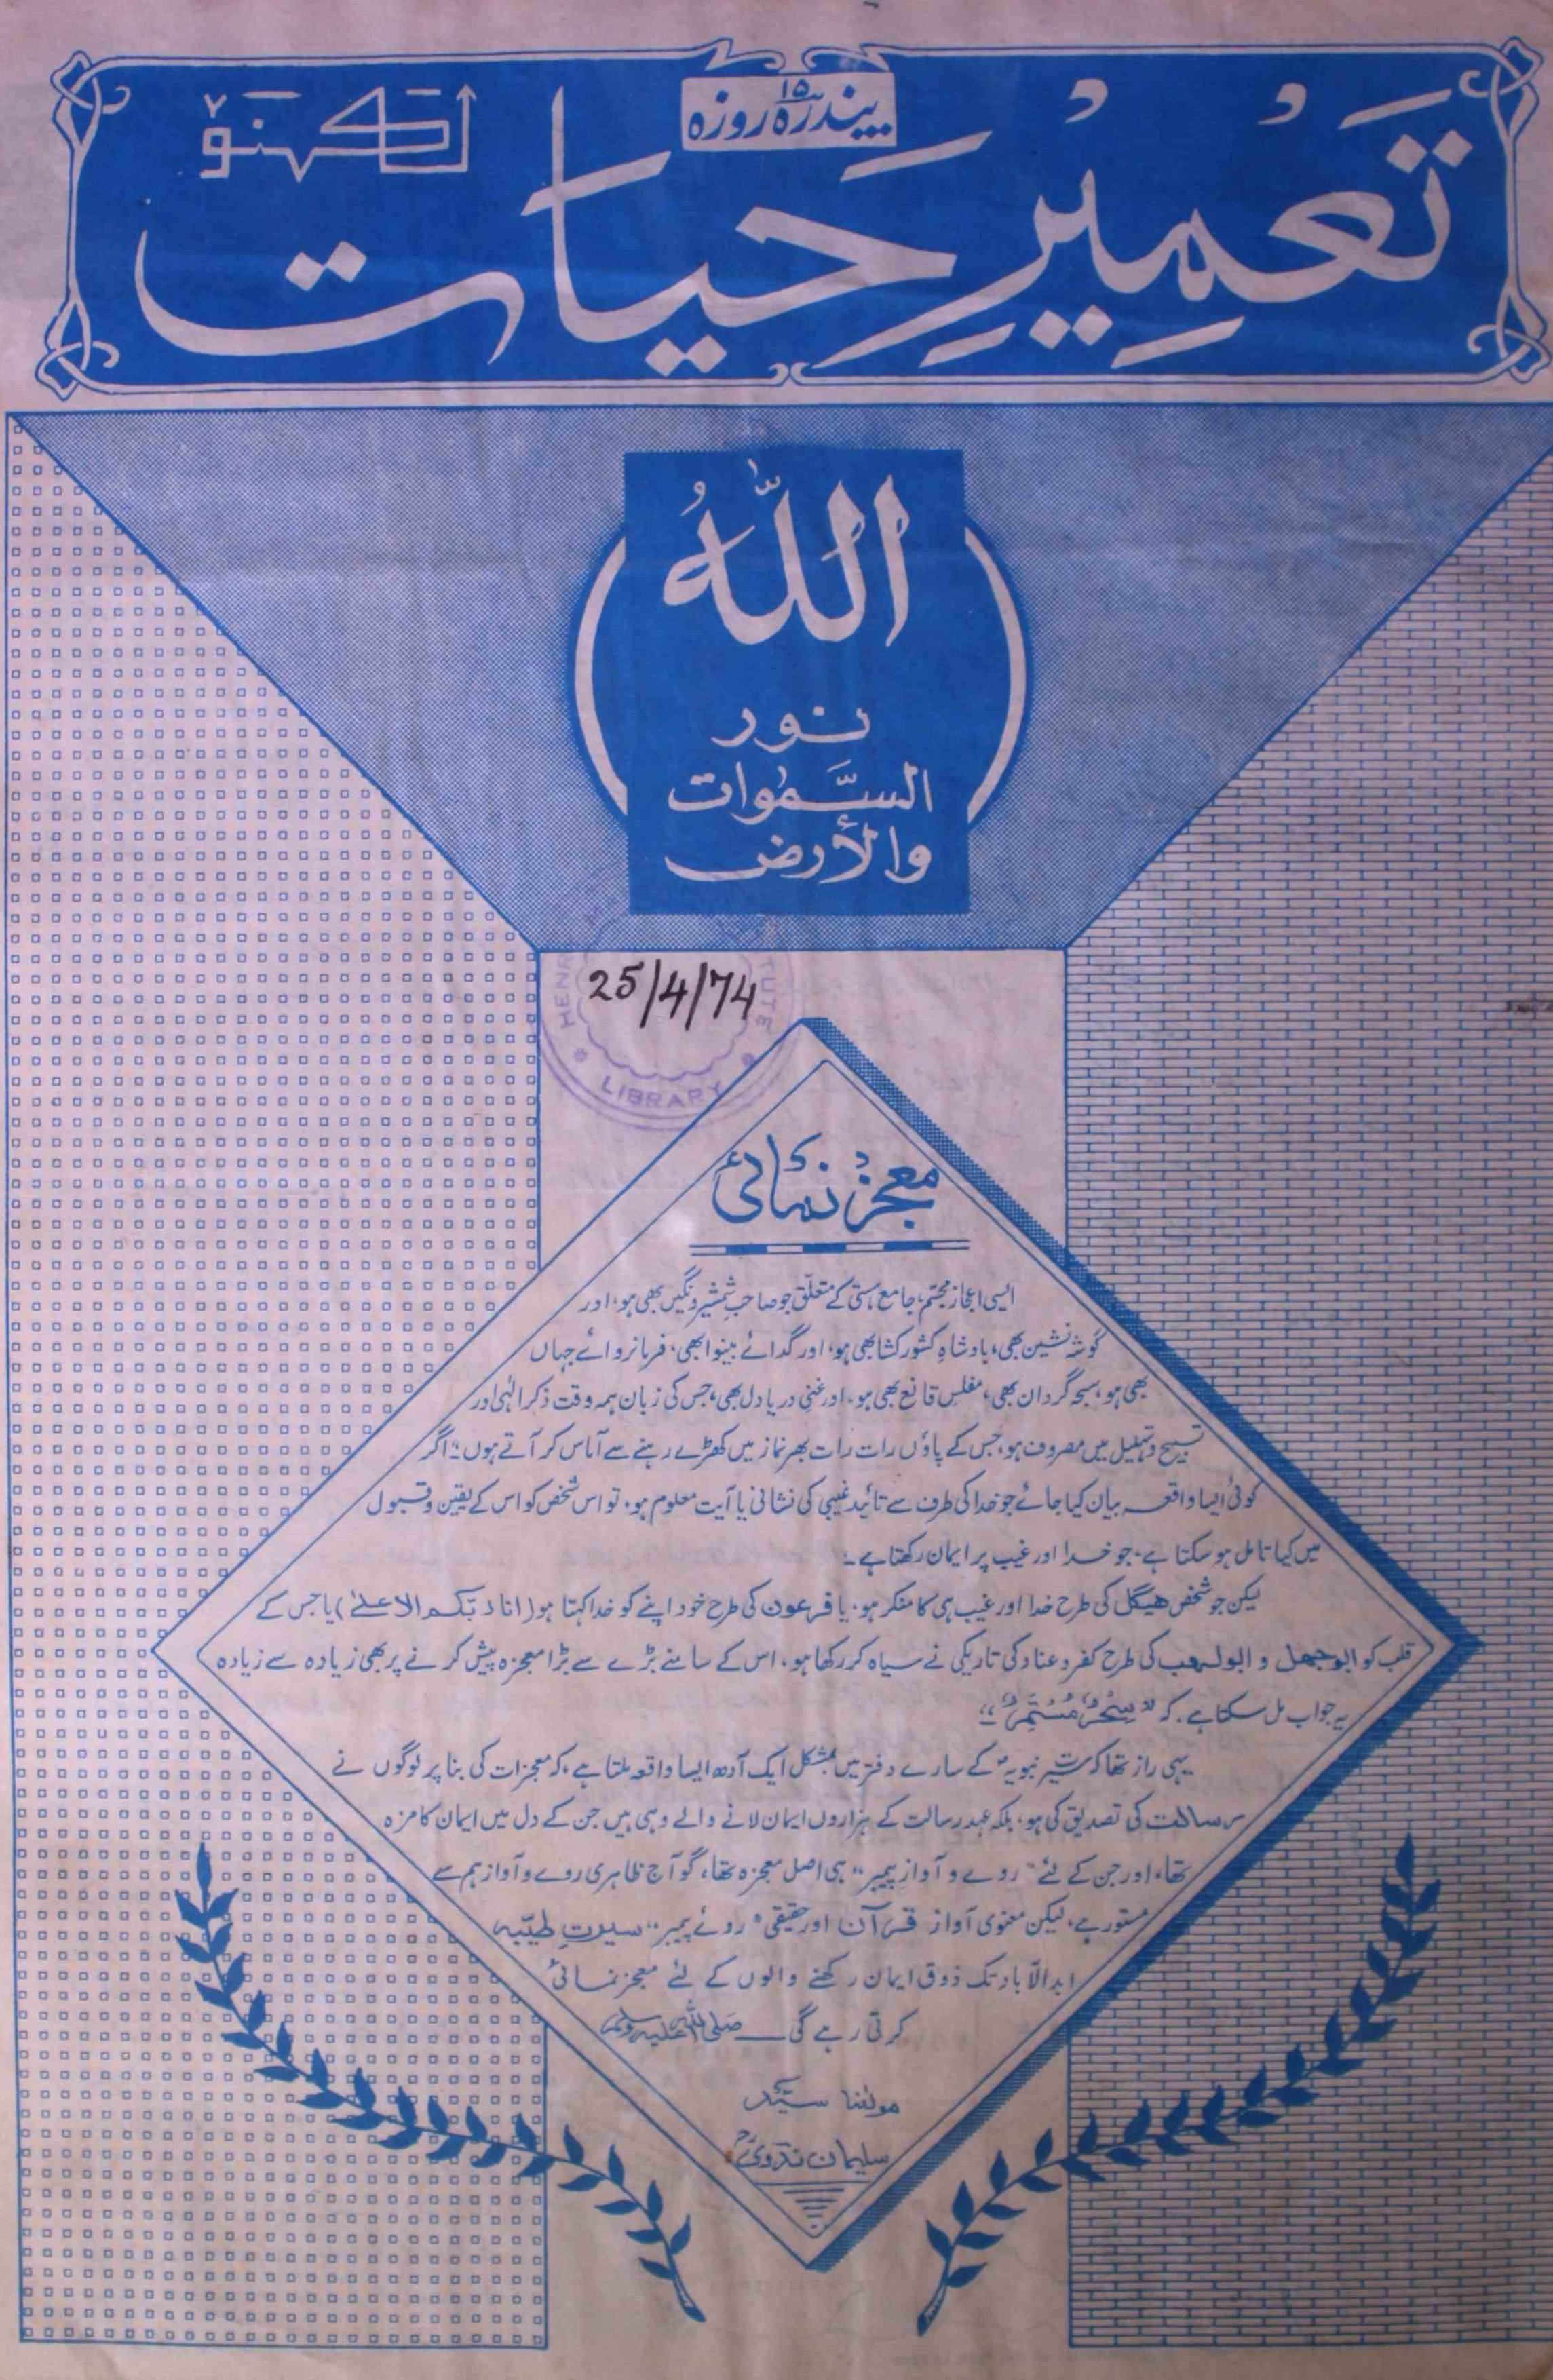 پندرہ ۱۵ روزہ
تَعمِیرِ حَیات
لکھنؤ
اللّٰہُ
نور
السَّمٰوات
والأرض
25/4/74
HENRY M TUTE
LIBRARY
معجز نمائی
ایسی اعجاز مجسّم، جامع ہستی کے متعلّق جو صاحب شمشیر و نگیں بھی ہو، اور
گوشہ نشین بھی، بادشاہِ کشور کشا بھی ہو، اور گدائے بینوا بھی، فرمانروائے جہاں
بھی ہو، سبحہ گرداں بھی، مفلسِ قانع بھی ہو، اور غنیِ دریا دل بھی، جس کی زبان ہمہ وقت ذکر الٰہی اور
تسبیح و تہلیل میں مصروف ہو، جس کے پاؤں رات رات بھر نماز میں کھڑے رہنے سے آماس کر آتے ہوں؛ اگر
کوئی ایسا واقعہ بیان کیا جائے جو خدا کی طرف سے تائید غیبی کی نشانی یا آیت معلوم ہو، تو اس شخص کو اس کے یقین و قبول
میں کیا تامل ہو سکتا ہے، جو خدا اور غیب پر ایمان رکھتا ہے۔
لیکن جو شخص ھیگل کی طرح خدا اور غیب ہی کا منکر ہو، یا فرعون کی طرح خود اپنے کو خدا کہتا ہو (انا ربکم الاعلیٰ) یا جس کے
قلب کو ابوجھل و ابولہب کی طرح کفر و عناد کی تاریکی نے سیاہ کر رکھا ہو، اس کے سامنے بڑے سے بڑا معجزہ پیش کرنے پر بھی زیادہ سے زیادہ
یہ جواب مل سکتا ہے، کہ "سِحْرٌ مُّسْتَمِرٌّ"۔
یہی راز تھا کہ سیرتِ نبویہؐ کے سارے دفتر میں بمشکل ایک آدھ ایسا واقعہ ملتا ہے، کہ معجزات کی بنا پر لوگوں نے
رسالت کی تصدیق کی ہو، بلکہ عہد رسالت کے ہزاروں ایمان لانے والے وہی ہیں جن کے دل میں ایمان کا مزہ
تھا، اور جن کے لئے "روے و آوازِ پیمبر" ہی اصل معجزہ تھا، گو آج ظاہری روے و آواز ہم سے
مستور ہے، لیکن معنوی آواز قرآن اور حقیقی "روئے پیمبر" سیرتِ طیّبہ
ابدالآباد تک ذوق ایمان رکھنے والوں کے لئے معجز نمائی
کرتی رہے گی ــــ صلی اللہ علیہ وسلم
مولٰنا سیّد
سلیمان ندویؒ